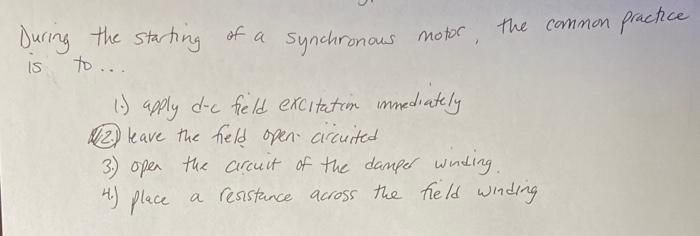 During the starting of a synchronous motor, the common practice
is to...
1.) apply d-c field excitation immediately
2.) leave the field open-circuited
3.) open the circuit of the damper winding.
4.) place a resistance across the field winding